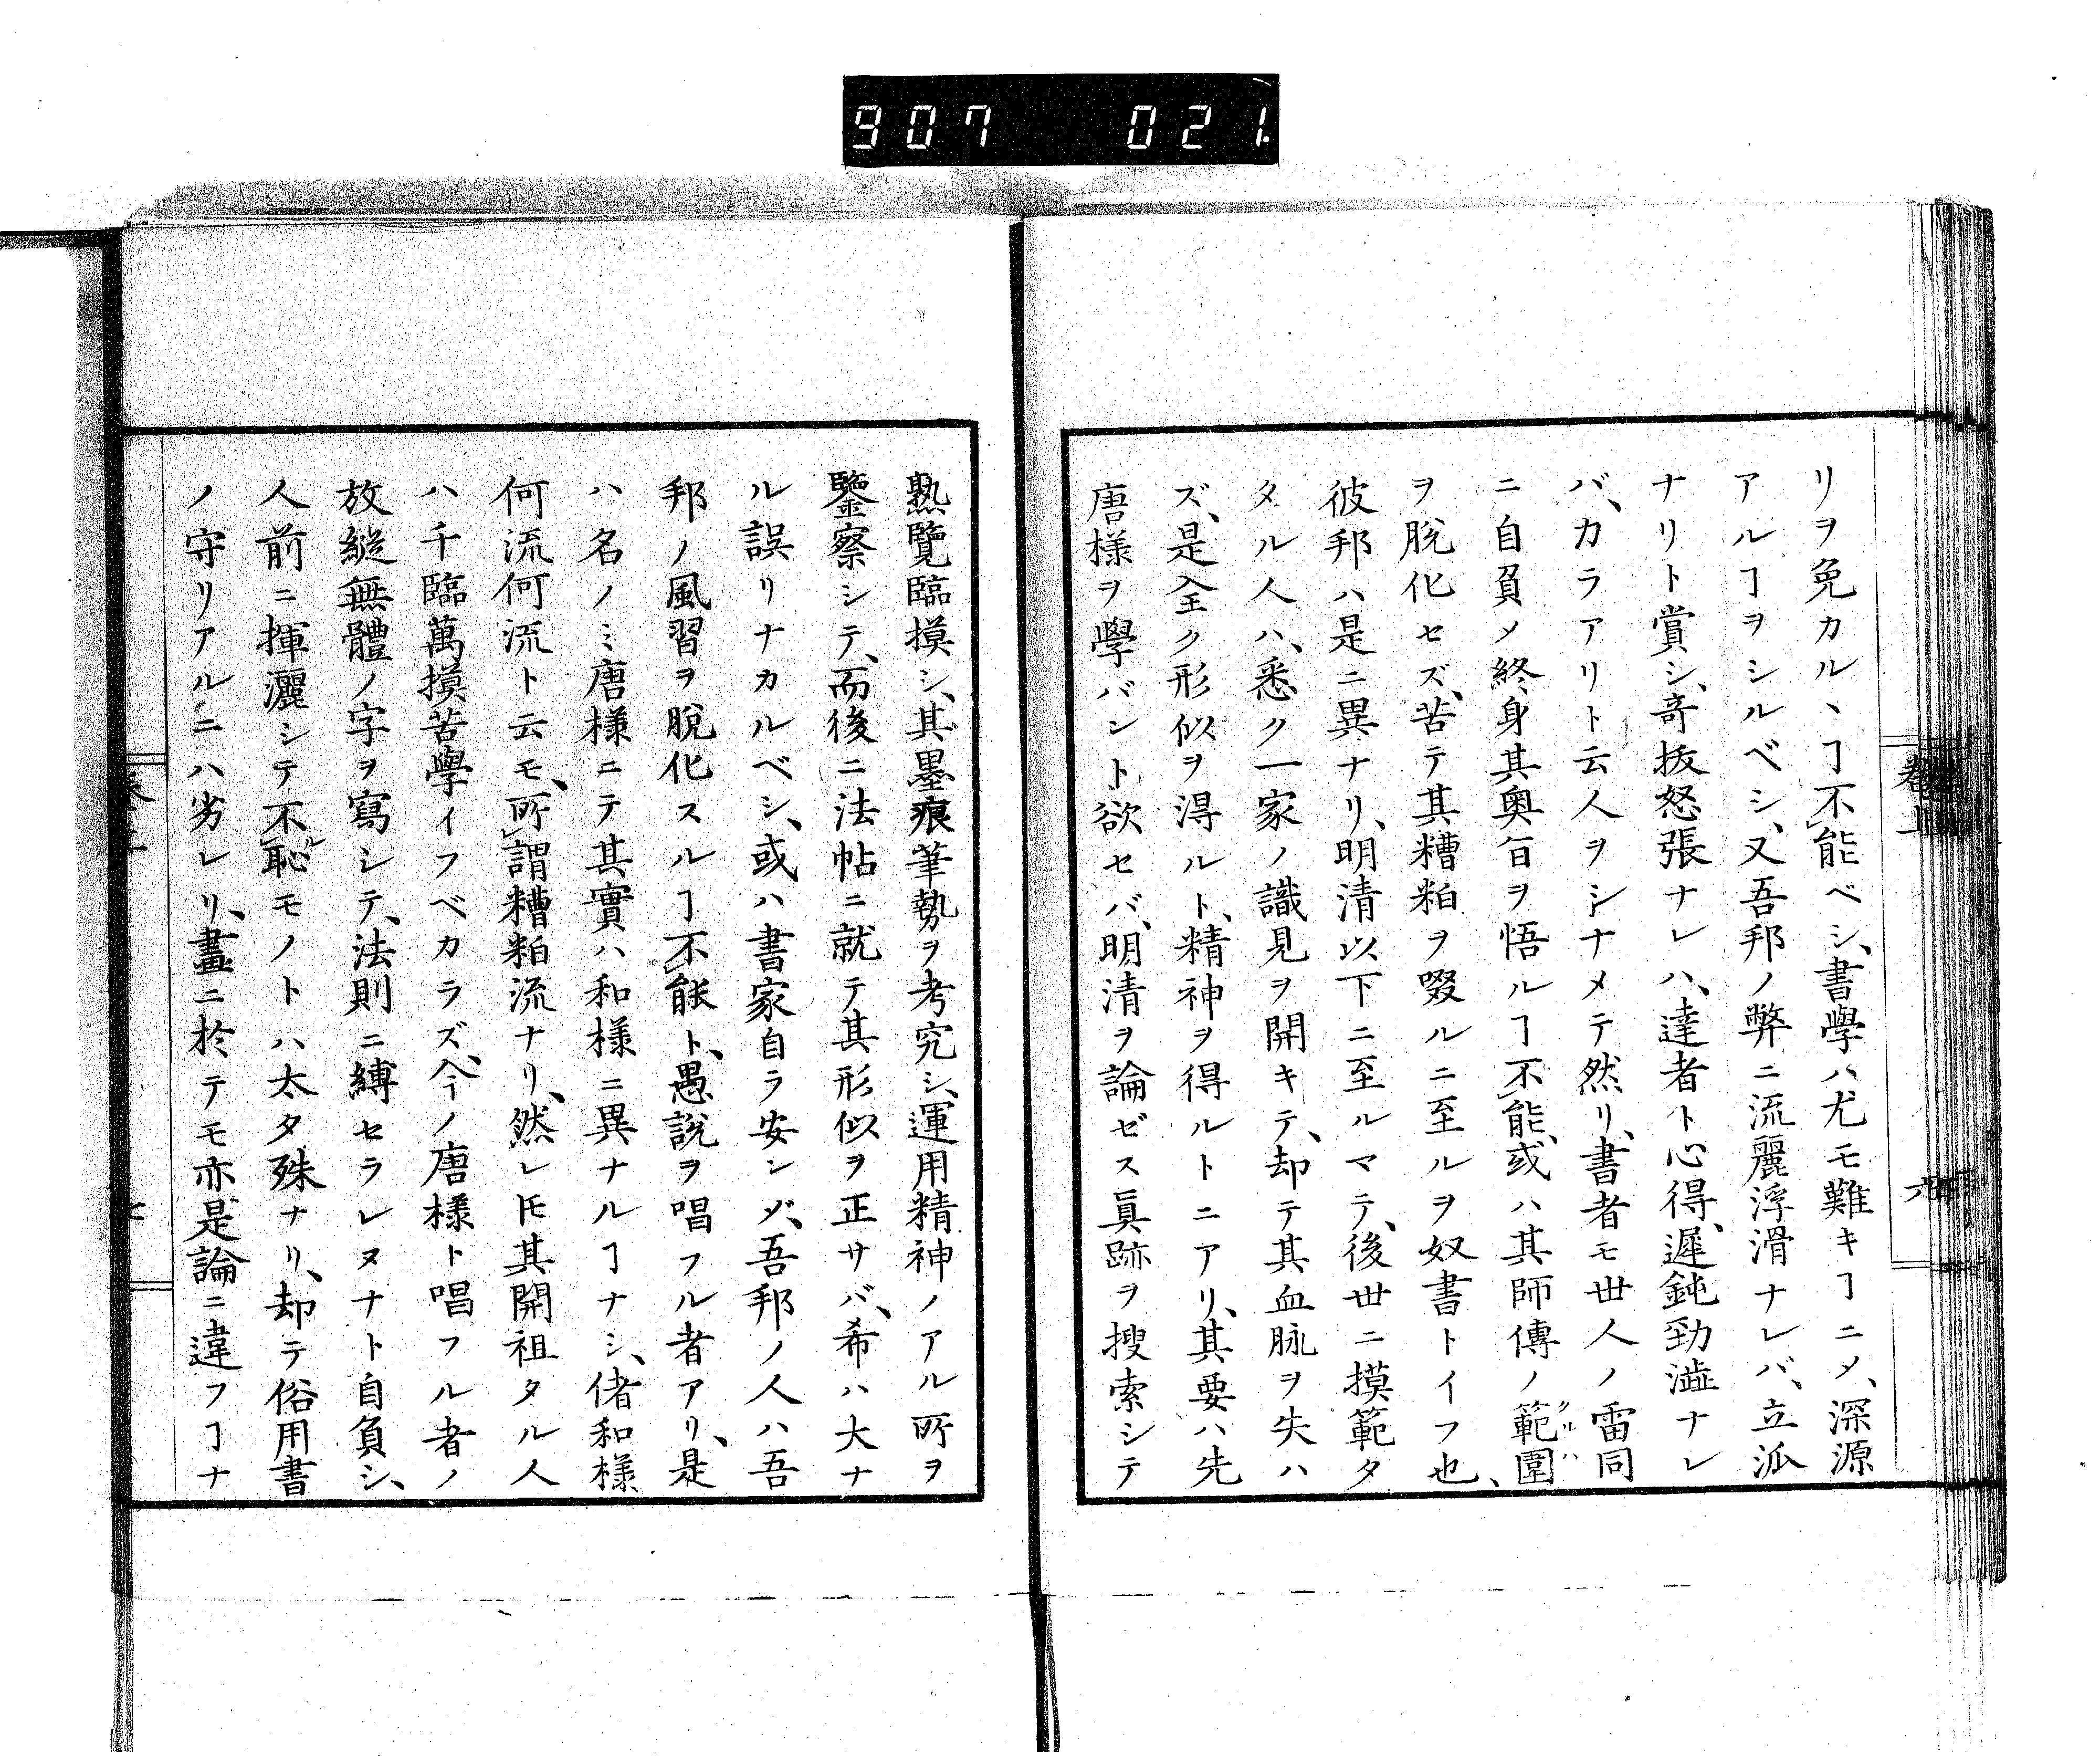 907 021
リヲ免カルヽヿ不能ベシ、書學ハ尤モ難キヿニメ、深源
アルヿヲシルベシ、又吾邦ノ弊ニ流麗浮滑ナレバ、立派
ナリト賞シ、奇抜怒張ナレハ、達者ト心得、遲鈍勁澁ナレ
バ、カラアリト云人ヲシナメテ然リ、書者モ世人ノ雷同
ニ自負メ終身其奥旨ヲ悟ルヿ不能、或ハ其師傳ノ範圍
ヲ脱化セズ、苦テ其糟粕ヲ啜ルニ至ルヲ奴書トイフ也、
彼邦ハ是ニ異ナリ、明清以下ニ至ルマテ、後世ニ摸範タ
タル人ハ、悉ク一家ノ識見ヲ開キテ、却テ其血脉ヲ失ハ
ズ、是全ク形似ヲ得ルト、精神ヲ得ルトニアリ、其要ハ先
唐樣ヲ學バント欲セバ、明清ヲ論ゼス眞跡ヲ搜索シテ
卷上
六
熟覽臨摸シ、其墨痕筆勢ヲ考究シ、運用精神ノアル所ヲ
鑒察シテ、而後ニ法帖ニ就テ其形似ヲ正サバ、希ハ大ナ
ル誤リナカルベシ、或ハ書家自ラ安ンメ、吾邦ノ人ハ吾
邦ノ風習ヲ脱化スルヿ不能ト、愚説ヲ唱フル者アリ、是
ハ名ノミ唐樣ニテ其實ハ和樣ニ異ナルヿナシ、偖和樣
何流何流ト云モ、所謂糟粕流ナリ、然レ𪜈其開祖タル人
ハ千臨萬摸苦學イフベカラズ、今ノ唐樣ト唱フル者ノ
放縱無體ノ字ヲ寫シテ、法則ニ縛セラレヌナト自負シ、
人前ニ揮灑シテ不恥ルモノトハ太タ殊ナリ、却テ俗用書
ノ守リアルニハ劣レリ、畫ニ於テモ亦是論ニ違フヿナ